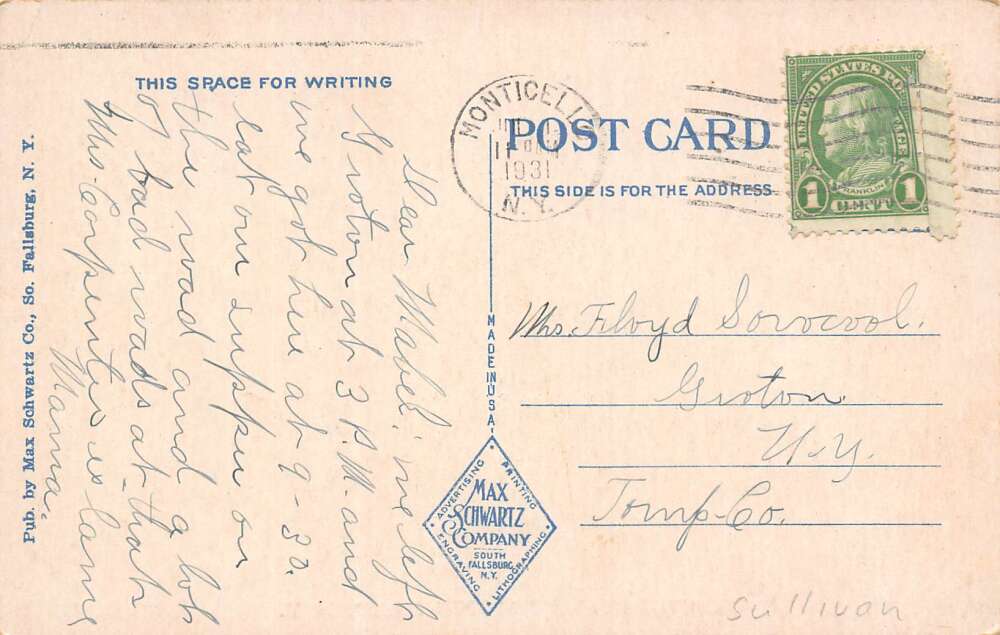 THIS SPACE FOR WRITING
Dear Mabel: we left
Groton at 3 P.M. and
we got here at 9-30.
eat our supper on
the road and a lot
of bad roads at that
Mrs. Carpenter is lame
Mamma.
Pub. by Max Schwartz Co., So. Fallsburg, N. Y.
MONTICELLO
11
1931
N.Y.
POST CARD
THIS SIDE IS FOR THE ADDRESS
UNITED STATES POSTAGE
FRANKLIN
1 CENT 1
Mrs. Floyd Sovocool.
Groton
N.Y.
Tomp-Co.
MADE IN U.S.A.
ADVERTISING PRINTING
MAX
SCHWARTZ
& COMPANY
SOUTH
FALLSBURG
N.Y.
ENGRAVING LITHOGRAPHING
Sullivan